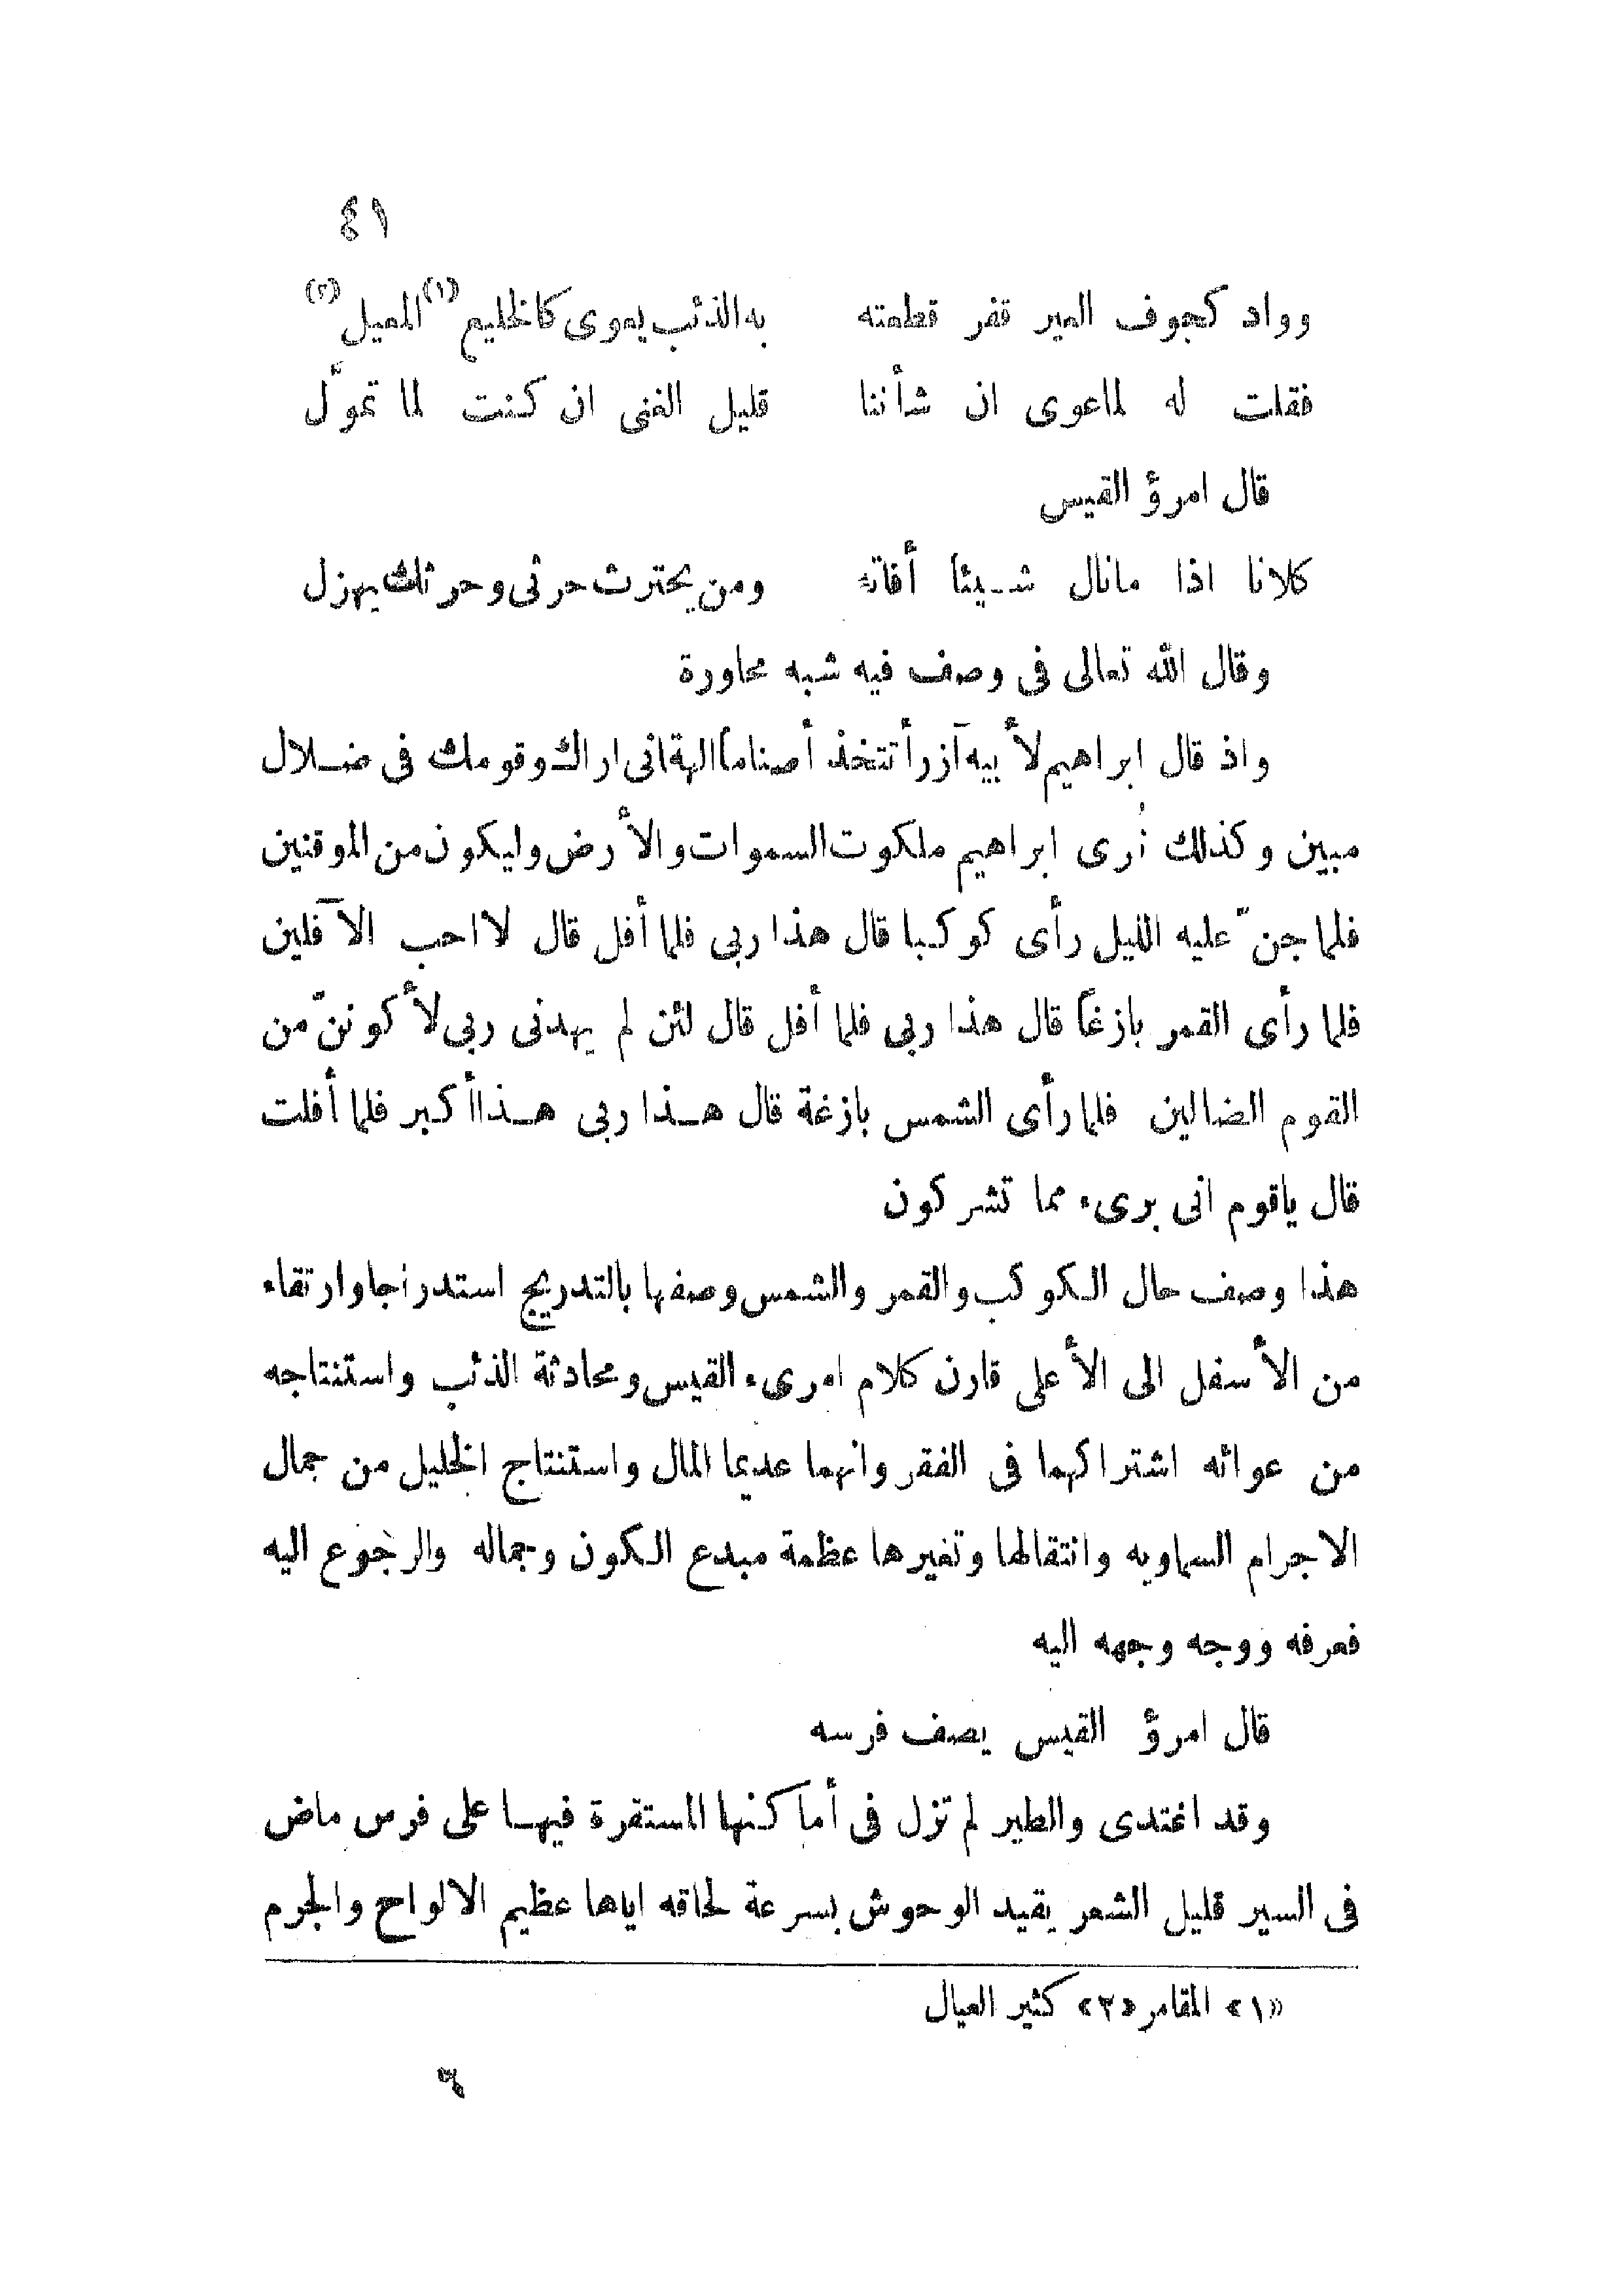 ٤١
وواد كجوف العير قفر قطعته به الذئب يعوى كالخليع (١) المعيل (٢)
فقلت له لما عوى ان شأننا قليل الغنى ان كنت لما تموَّل
قال امرؤ القيس
كلانا اذا مانال شيئا أفاته ومن يحترث حرثى وحرثك يهزل
وقال الله تعالى فى وصف فيه شبه محاورة
واذ قال ابراهيم لأبيه آزر أتتخذ أصناماً الهة انى اراك وقومك فى ضلال
مبين وكذلك نُرى ابراهيم ملكوت السموات والأرض وليكون من الموقنين
فلما جنّ عليه الليل رأى كوكبا قال هذا ربى فلما أفل قال لا احب الآفلين
فلما رأى القمر بازغاً قال هذا ربى فلما أفل قال لئن لم يهدنى ربى لأكوننّ من
القوم الضالين فلما رأى الشمس بازغة قال هذا ربى هذا أكبر فلما أفلت
قال ياقوم انى برىء مما تشركون
هذا وصف حال الكوكب والقمر والشمس وصفها بالتدريج استدراجا وارتقاء
من الأسفل الى الأعلى قارن كلام امرىء القيس ومحادثة الذئب واستنتاجه
من عوائه اشتراكهما فى الفقر وانهما عديما المال واستنتاج الخليل من جمال
الاجرام السماويه وانتقالها وتغيرها عظمة مبدع الكون وجماله والرجوع اليه
فعرفه ووجه وجهه اليه
قال امرؤ القيس يصف فرسه
وقد اغتدى والطير لم تزل فى أماكنها المستقرة فيها على فرس ماض
فى السير قليل الشعر يقيد الوحوش بسرعة لحاقه اياها عظيم الالواح والجرم
«١» المقامر «٢» كثير العيال
٦